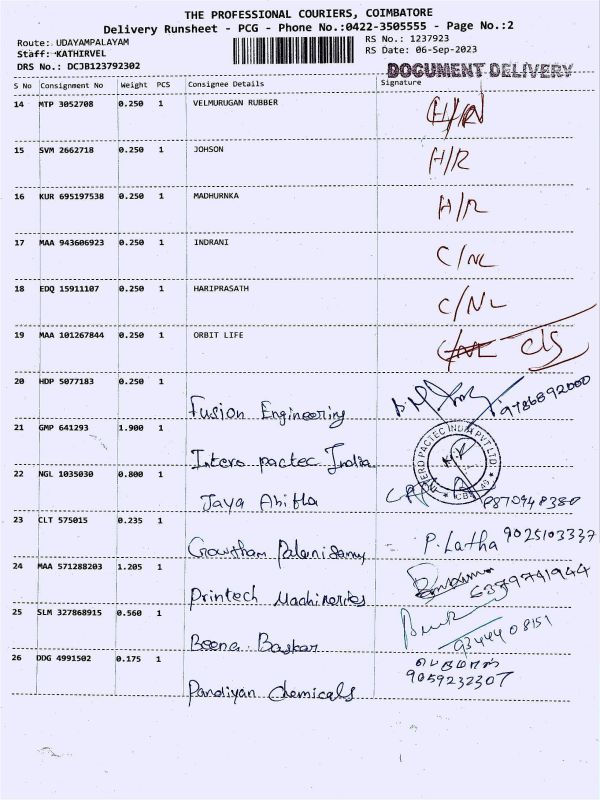 THE PROFESSIONAL COURIERS, COIMBATORE
Delivery Runsheet - PCG - Phone No.:0422-3505555 - Page No.:2
Route: UDAYAMPALAYAM RS No.: 1237923
Staff: KATHIRVEL RS Date: 06-Sep-2023
DRS No.: DCJB123792302
DOCUMENT DELIVERY
S No Consignment No Weight PCS Consignee Details Signature
14 MTP 3052708 0.250 1 VELMURUGAN RUBBER H/R
15 SVM 2662718 0.250 1 JOHSON H/R
16 KUR 695197538 0.250 1 MADHURNKA H/R
17 MAA 943606923 0.250 1 INDRANI C/NL
18 EDQ 15911107 0.250 1 HARIPRASATH C/NL
19 MAA 101267844 0.250 1 ORBIT LIFE C/NL Cls
20 HDP 5077183 0.250 1
Fusion Engineering 9786892000
21 GMP 641293 1.900 1
Intero pactec India
22 NGL 1035030 0.800 1
Jaya Abitla 9870948380
23 CLT 575015 0.235 1
Gowtham Palanisamy P. Latha 9025103337
24 MAA 571288203 1.205 1
Printech Machineries 6379741944
25 SLM 327868915 0.560 1
Beena Baskar 9344408151
26 DDG 4991502 0.175 1
Pandiyan Chemicals 9059232307